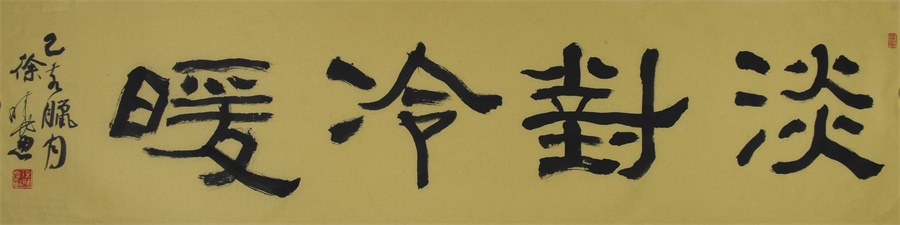 淡對冷暖
己亥臘月
徐